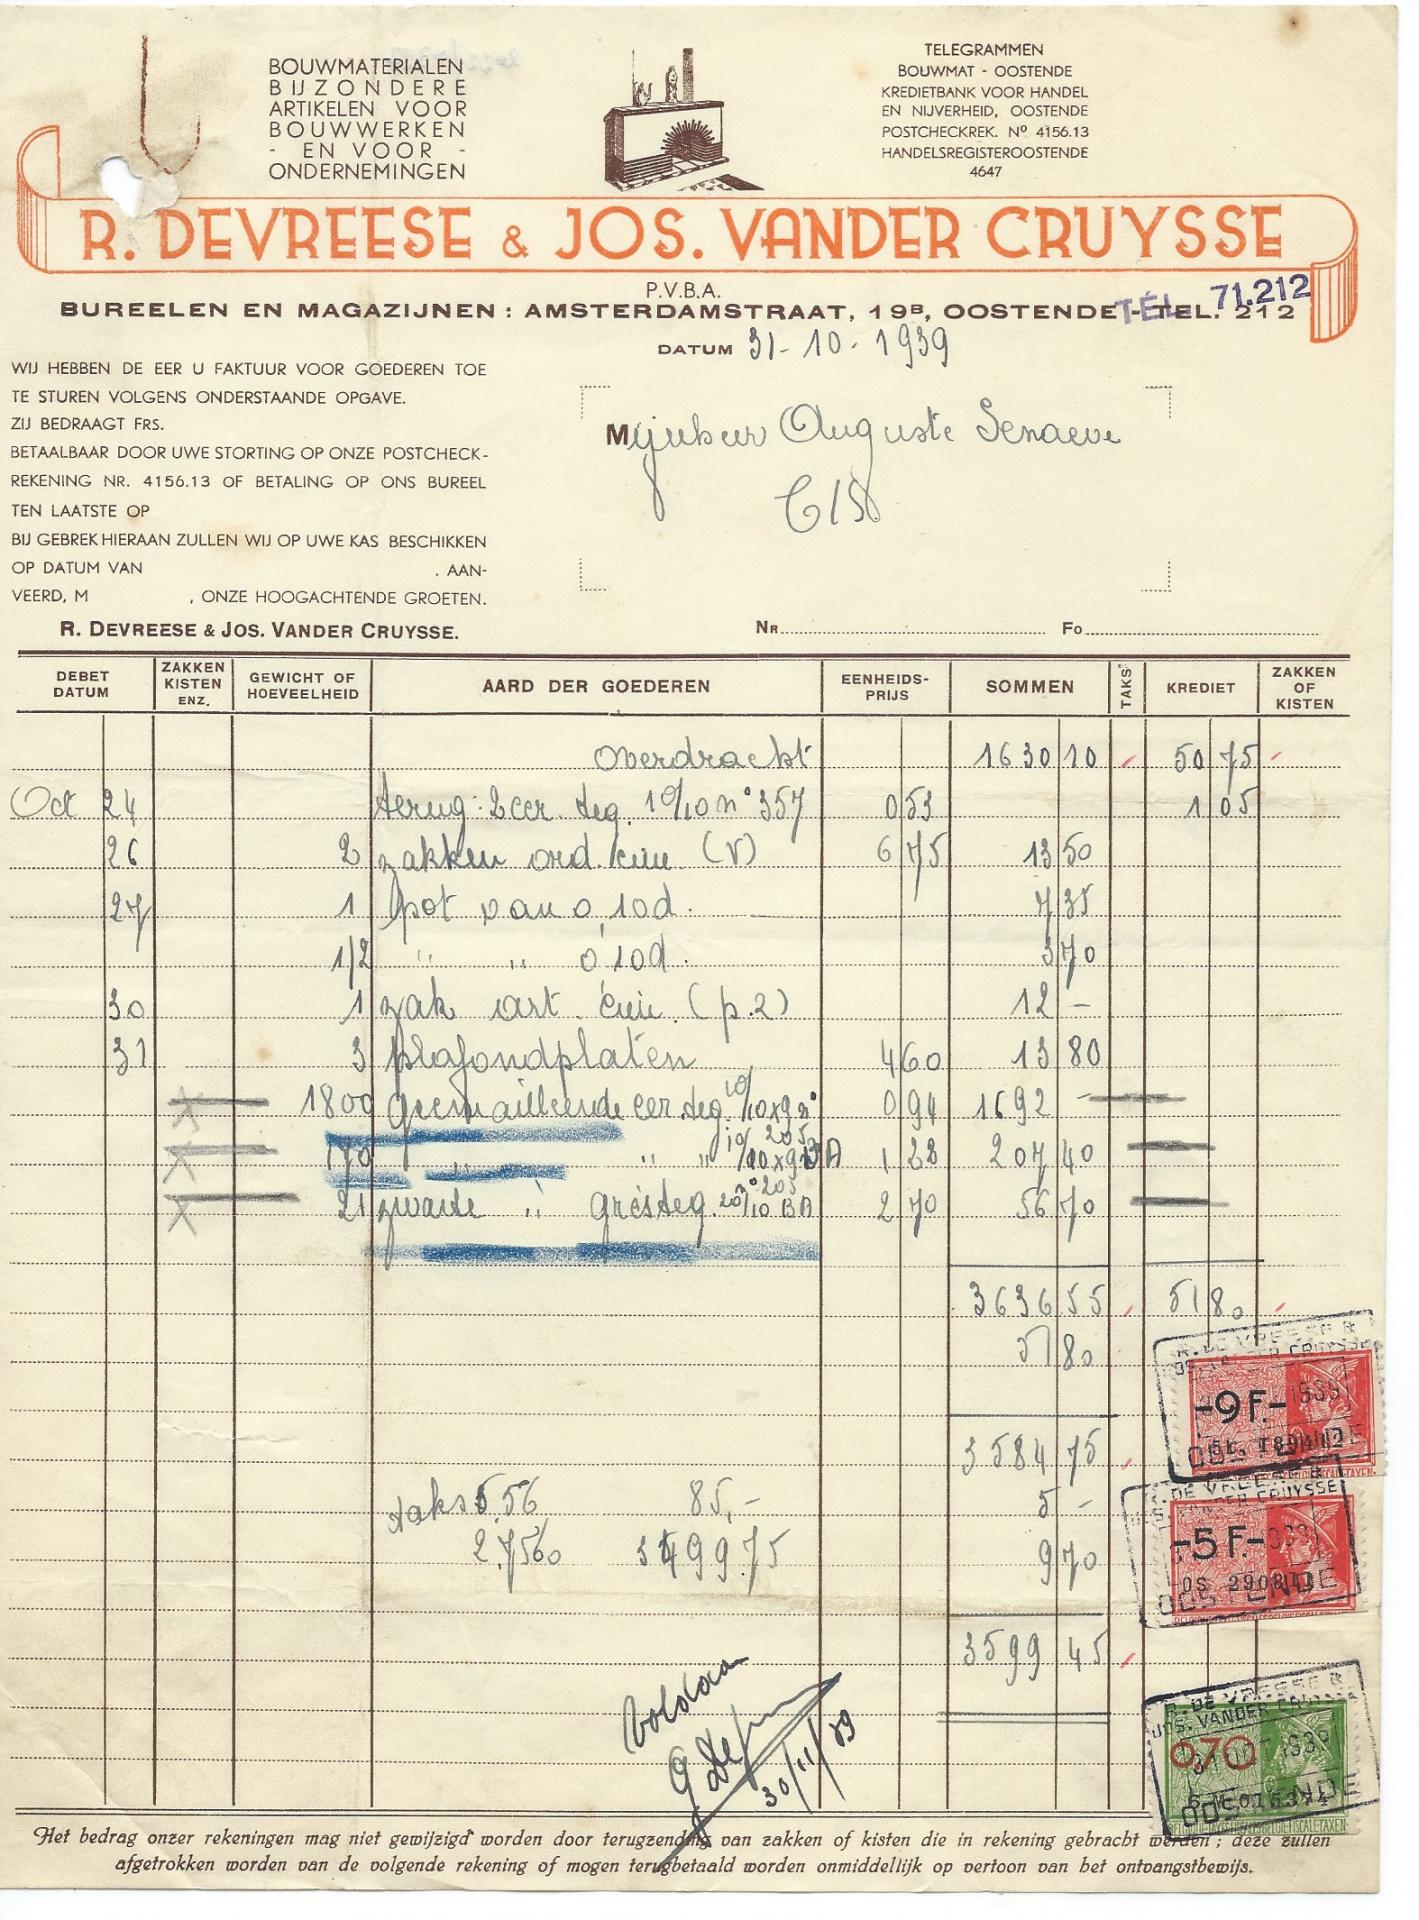 BOUWMATERIALEN
BIJZONDERE
ARTIKELEN VOOR
BOUWWERKEN
- EN VOOR -
ONDERNEMINGEN
TELEGRAMMEN
BOUWMAT - OOSTENDE
KREDIETBANK VOOR HANDEL
EN NIJVERHEID, OOSTENDE
POSTCHECKREK. Nº 4156.13
HANDELSREGISTEROOSTENDE
4647
R. DEVREESE & JOS. VANDER CRUYSSE
P.V.B.A.
BUREELEN EN MAGAZIJNEN : AMSTERDAMSTRAAT, 19B, OOSTENDE - TEL. 212
TÉL. 71.212
DATUM 31-10-1939
WIJ HEBBEN DE EER U FAKTUUR VOOR GOEDEREN TOE
TE STUREN VOLGENS ONDERSTAANDE OPGAVE.
ZIJ BEDRAAGT FRS.
BETAALBAAR DOOR UWE STORTING OP ONZE POSTCHECK-
REKENING NR. 4156.13 OF BETALING OP ONS BUREEL
TEN LAATSTE OP
BIJ GEBREK HIERAAN ZULLEN WIJ OP UWE KAS BESCHIKKEN
OP DATUM VAN . AAN-
VEERD, M , ONZE HOOGACHTENDE GROETEN.
R. DEVREESE & JOS. VANDER CRUYSSE.
Mijnheer Auguste Senaeve
NR. FO.
DEBET DATUM ZAKKEN KISTEN ENZ. GEWICHT OF HOEVEELHEID AARD DER GOEDEREN EENHEIDS-PRIJS SOMMEN TAKS KREDIET ZAKKEN OF KISTEN
Overdracht 1630 10 50 75
Oct 24 terug: 2 cer. teg. 10/10 nº 357 0 53 1 05
26 2 zakken ord. cim (V) 6 75 13 50
27 1 pot van 0,10d. 7 35
1/2 " " 0'10d. 3 70
30 1 zak art. cim. (p.2) 12 -
31 3 plafondplaten 4 60 13 80
1800 geemailleerde cer. teg. 10/10x9 nº 205 0 94 1692 -
170 " " " 10/10x9 BA nº 205 1 22 207 40
21 zwarte " grèsteg. 20/10 BA 2 70 56 70
3636 55 51 80
51 80
3584 75
taks 5.56 85,- 5 -
2.7560 3499.75 9 70
3599 45
Voldaan
30/11/39
R. DE VREESE &
JOS. VANDER CRUYSSE
-9F.- 1939
OOSTENDE
R. DE VREESE &
JOS. VANDER CRUYSSE
-5F.- 1939
OS 290811
OOSTENDE
R. DE VREESE &
JOS. VANDER CRUYSSE
0,70 1939
OOSTENDE
Het bedrag onzer rekeningen mag niet gewijzigd worden door terugzending van zakken of kisten die in rekening gebracht werden ; deze zullen
afgetrokken worden van de volgende rekening of mogen terugbetaald worden onmiddellijk op vertoon van het ontvangstbewijs.